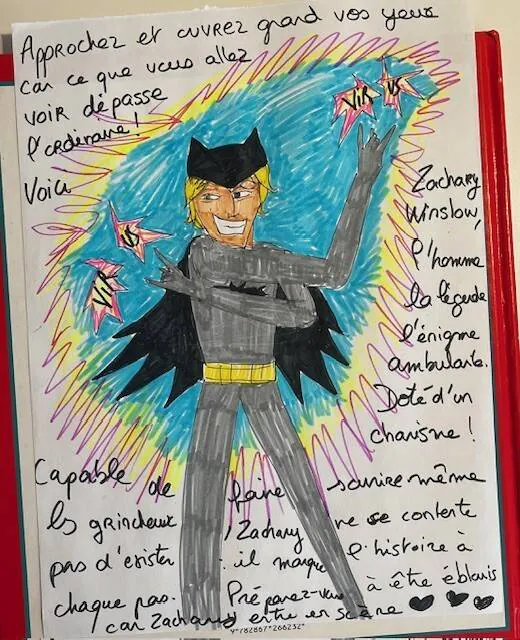 Approchez et ouvrez grand vos yeux
car ce que vous allez
voir dépasse
l'ordinaire!
Voici
VIR US
VIR US
Zachary
Winslow,
l'homme
la légende
l'énigme
ambulante.
Doté d'un
charisme!
Capable de faire sourire même
les grincheux, Zachary ne se contente
pas d'exister : il marque l'histoire à
chaque pas. Préparez-vous à être éblouis
car Zachary entre en scène ♥ ♥ ♥
9782867266232